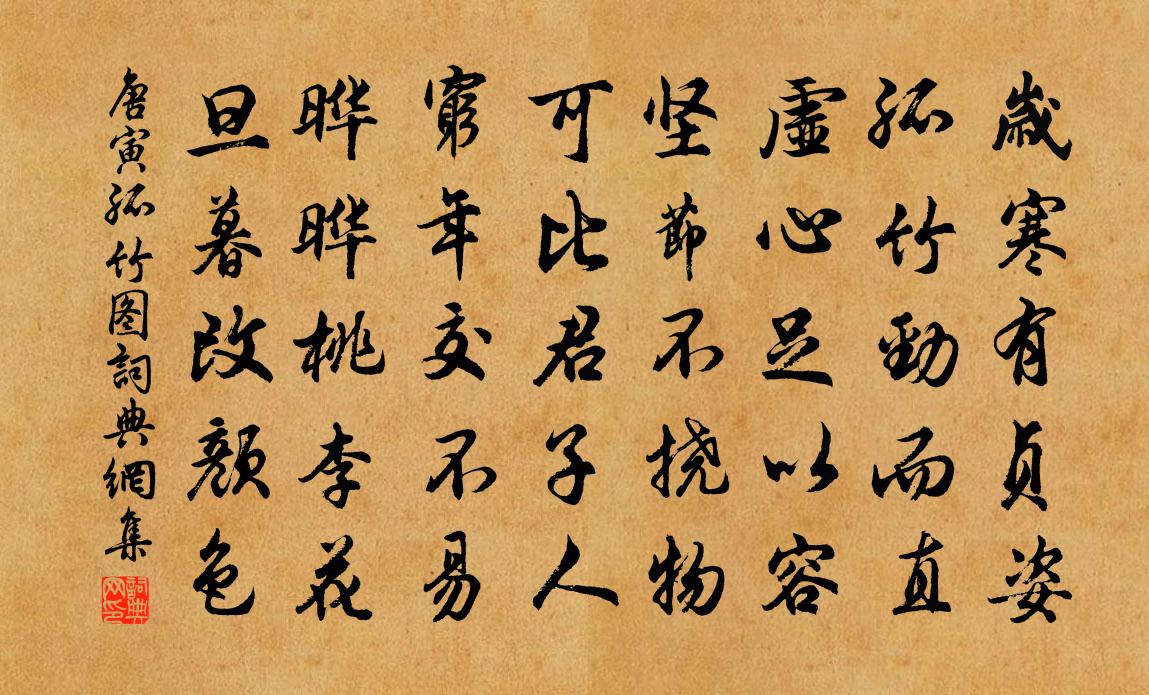 歲寒有貞姿
孤竹勁而直
虛心足以容
坚節不撓物
可比君子人
窮年交不易
晔晔桃李花
旦暮改顔色
唐寅孤竹图詞典網集
詞典网印